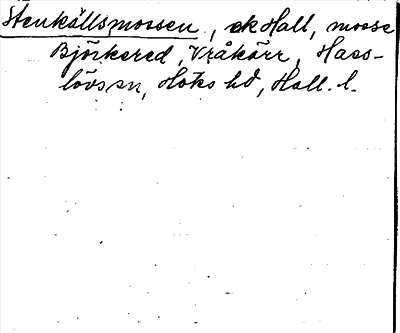 Stenkällsmossen, ek Hall, mosse
Björkered, Vråkärr, Hass-
lövs sn, Höks hd, Hall. l.